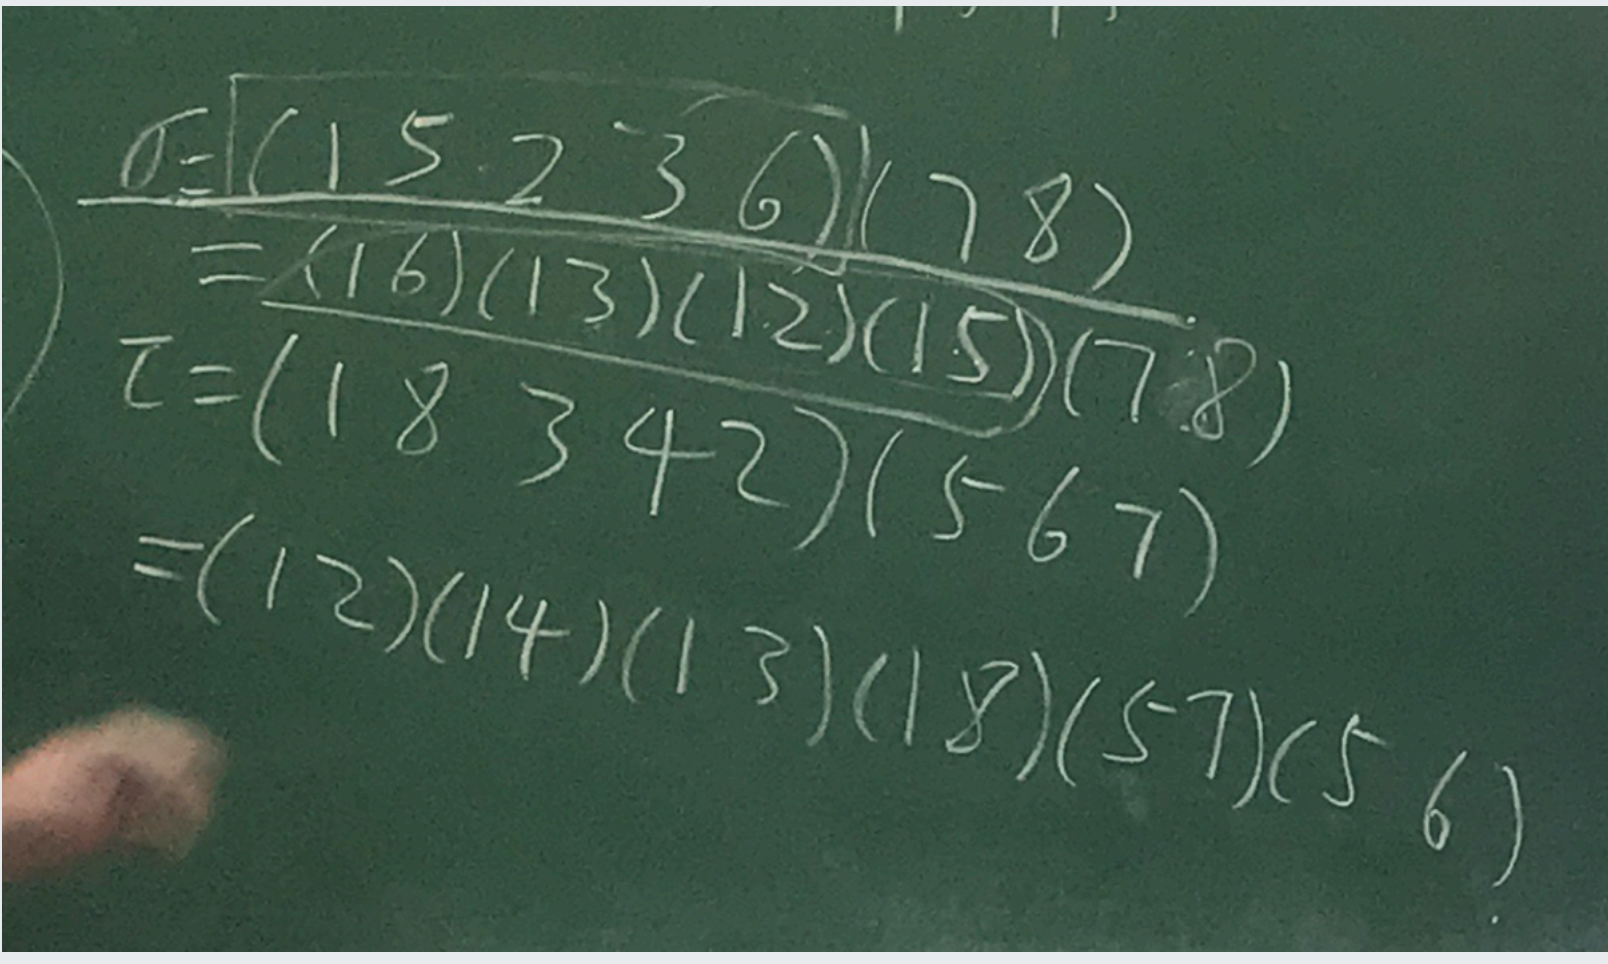 σ = (1 5 2 3 6)(7 8)
= (16)(13)(12)(15)(78)
τ = (1 8 3 4 2)(5 6 7)
= (12)(14)(13)(18)(57)(56)